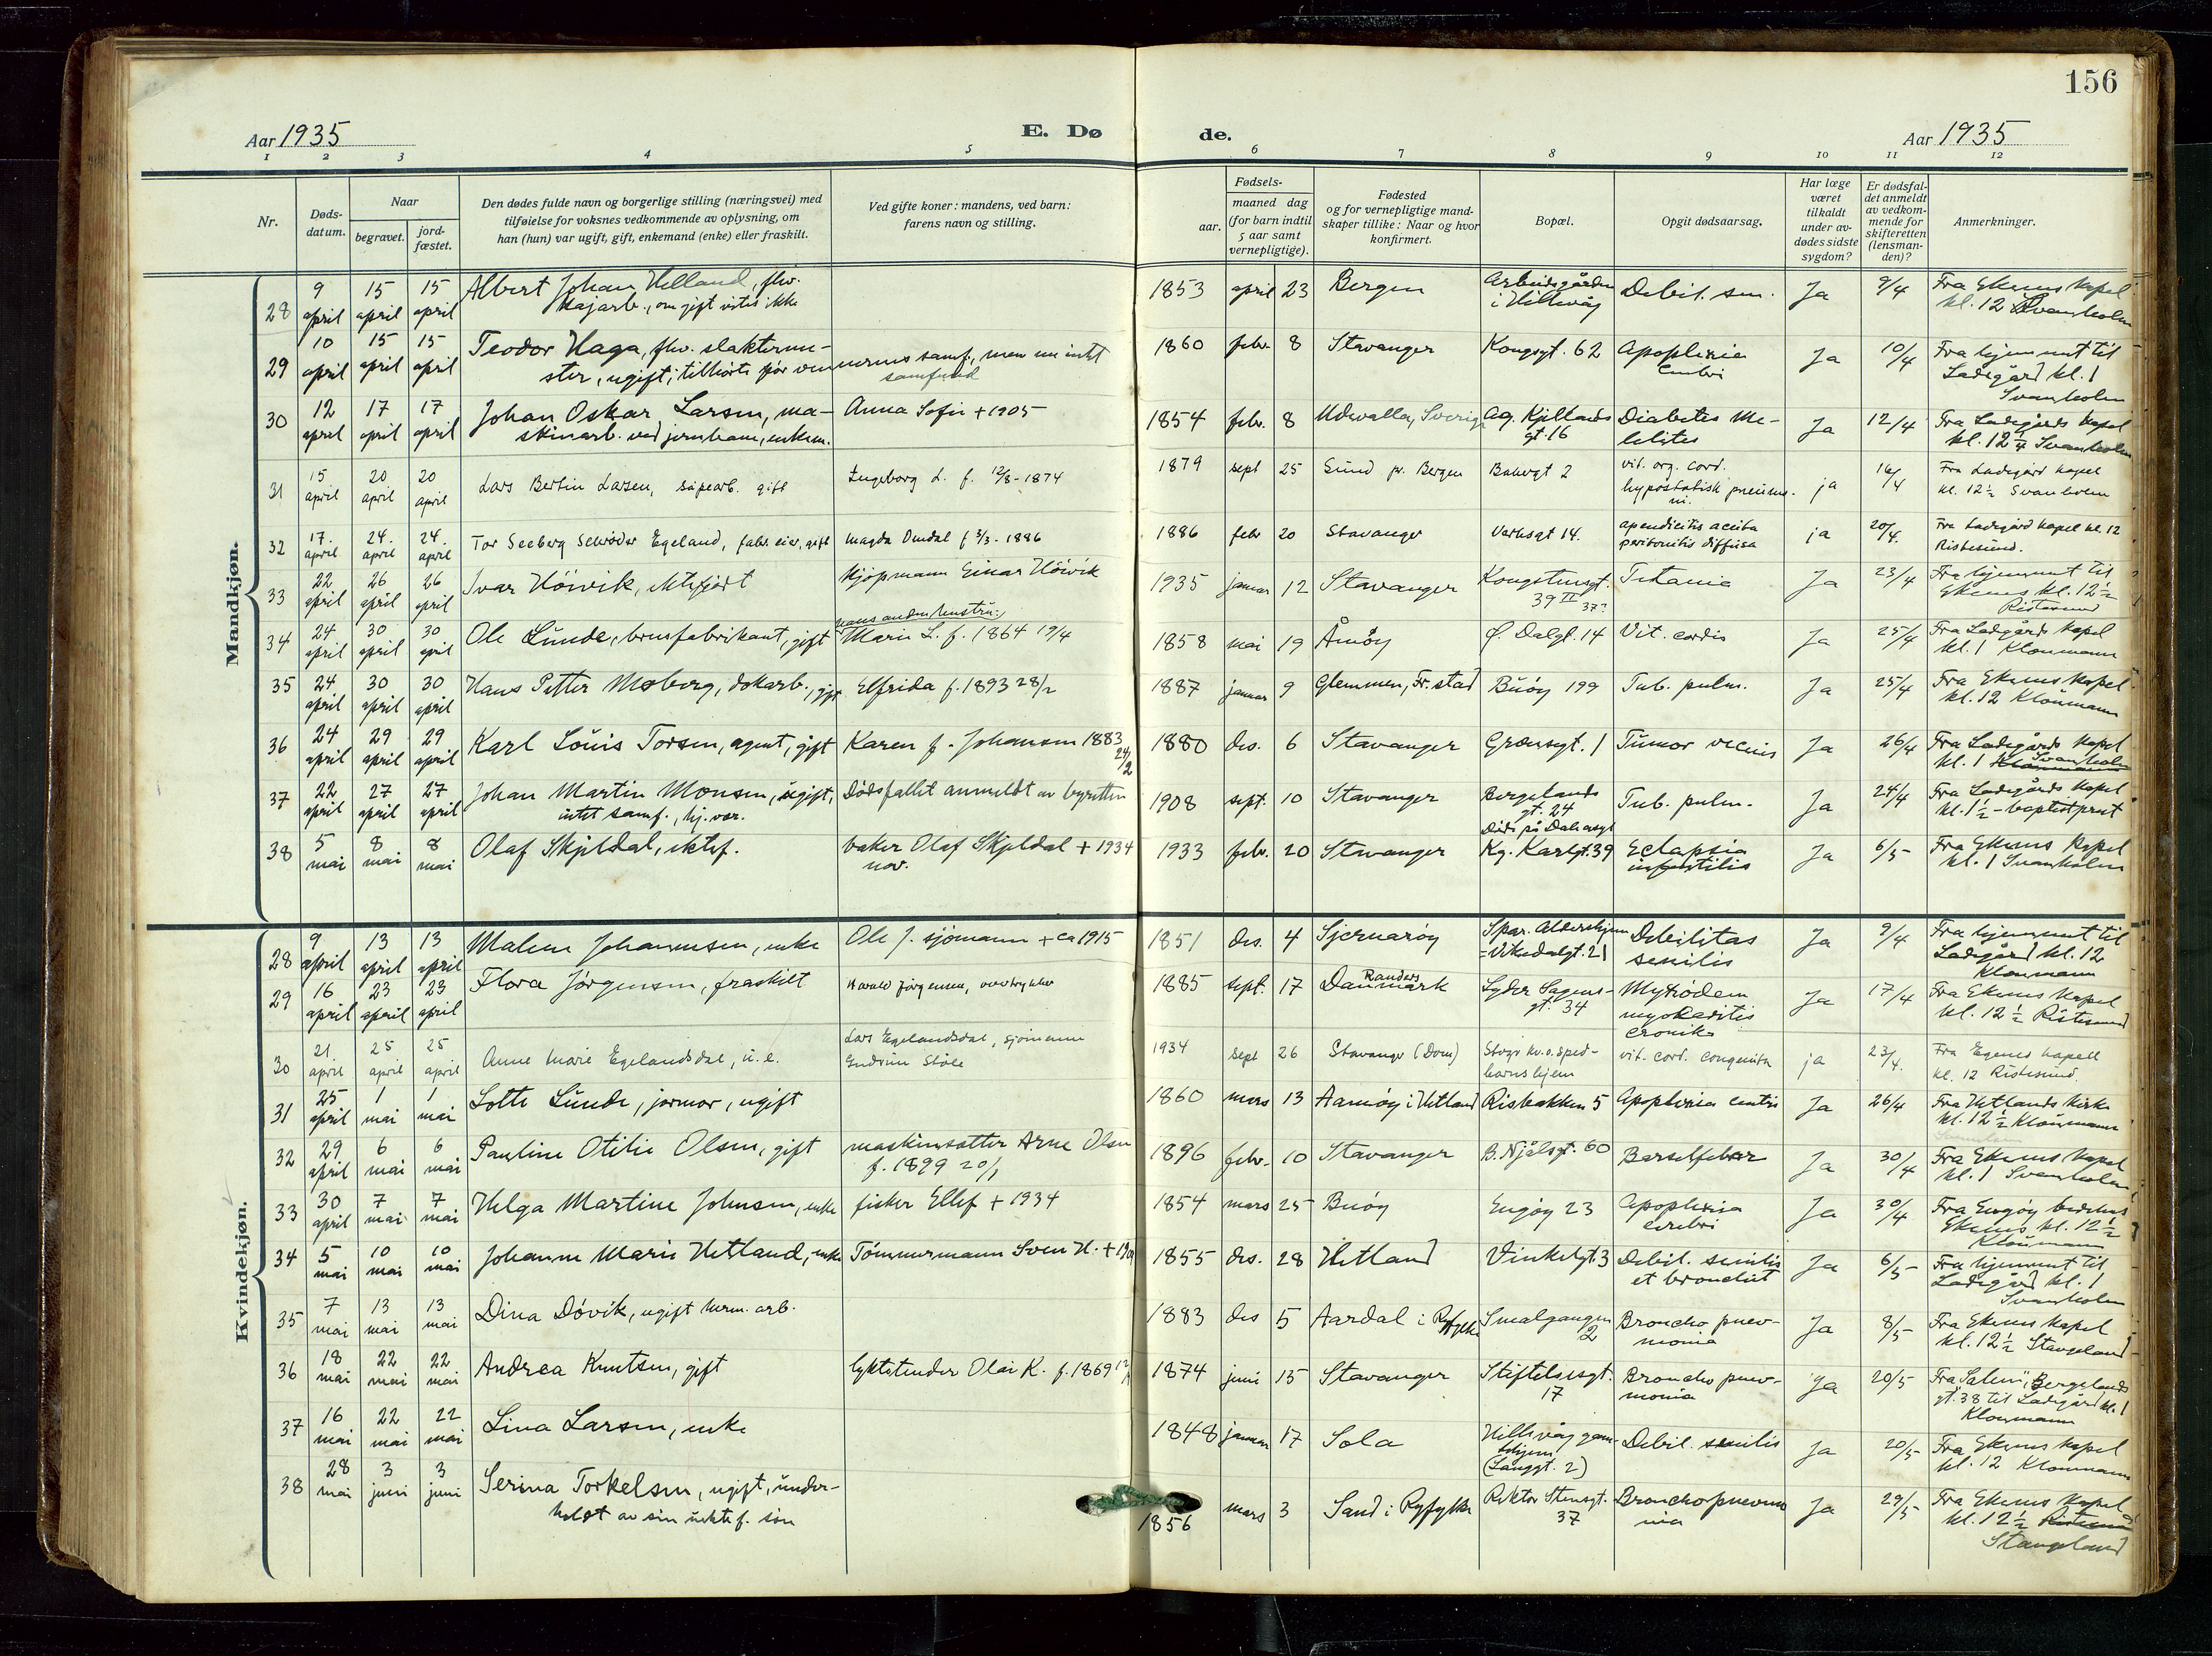 156
Aar 1935
E. Dø
de.
Aar 1935
1 2 3 4 5 6 7 8 9 10 11 12
Nr.
Døds-
datum.
Naar
begravet.
jord-
fæstet.
Den dødes fulde navn og borgerlige stilling (næringsvei) med
tilføielse for voksnes vedkommende av oplysning, om
han (hun) var ugift, gift, enkemand (enke) eller fraskilt.
Ved gifte koner: mandens, ved barn:
farens navn og stilling.
aar.
Fødsels-
maaned dag
(for barn indtil
5 aar samt
vernepligtige).
Fødested
og for vernepligtige mand-
skaper tillike: Naar og hvor
konfirmert.
Bopæl.
Opgit dødsaarsag.
Har læge
været
tilkaldt
under av-
dødes sidste
sygdom?
Er dødsfal-
det anmeldt
av vedkom-
mende for
skifteretten
(lensman-
den)?
Anmerkninger.
Mandkjøn.
28 9 april 15 april 15 april Albert Johan Helland, fhv.
kajarb., om gift vites ikke
1853 april 23 Bergen Arbeidsgården
i Hillevåg Debil. sen. Ja 9/4 Fra Ekenes kapel
kl. 12 Svanholm
29 10 april 15 april 15 april Teodor Haga, fhv. slakterme-
ster, ugift; tilhørte før vennernes samf., men nu intet
samfund
1860 febr. 8 Stavanger Kongsgt. 62 Apoplexia
cerebri Ja 10/4 Fra hjemmet til
Ladegård kl. 1
Svanholm
30 12 april 17 april 17 april Johan Oskar Larsen, ma-
skinarb. ved jernbane, enkem. Anna Sofie + 1905
1854 febr. 8 Udevalla, Sverige Ag. Kjellands
gt. 16 Diabetes me-
lelites Ja 12/4 Fra Ladegårds kapel
kl. 12 1/4 Svanholm
31 15 april 20 april 20 april Lars Bertin Larsen, såpearb. gift Ingeborg L. f. 12/8-1874
1879 sept 25 Sund pr. Bergen Bakergt 2 vit. org. cord.
hypostatisk pneumo-
ni. ja 16/4 Fra Ladegård kapel
kl. 12 1/2 Svanholm
32 17. april 24. april 24. april Tor Seeberg Schrøder Egeland, fabr. eier, gift Magda Omdal f 3/3-1886
1886 febr 20 Stavanger Verksgt 14. apendicitis acuta
peritonitis diffusa ja 20/4. Fra Ladegård kapel kl. 12
Ristesund.
33 22 april 26 april 26 april Ivar Höivik, ektefødt kjøpmann Einar Höivik
1935 januar 12 Stavanger Kongstensgt.
39 II 37? Tetania Ja 23/4 Fra hjemmet til
Ekenes kl. 12 1/2
Ristesund
34 24 april 30 april 30 april Ole Lunde, brusfabrikant, gift hans anden hustru:
Marie L. f. 1864 19/4
1858 mai 19 Åmøy Ø. Dalgt. 14 Vit. cordis Ja 25/4 Fra Ladegårds kapel
kl. 1 Kloumann
35 24 april 30 april 30 april Hans Petter Moberg, dokarb., gift Elfrida f. 1893 28/2
1887 januar 9 Glemmen, Fr.stad Buøy 199 Tub. pulm. Ja 25/4 Fra Ekenes kapel
kl. 12 Kloumann
36 24 april 29 april 29 april Karl Louis Torsen, agent, gift Karen f. Johansen 1883
24/2
1880 des. 6 Stavanger Grensegt. 1 Tumor Ja 26/4 Fra Ladegårds kapel
kl. 1 Kloumann Svanholm
37 22 april 27 april 27 april Johan Martin Monsen, ugift,
intet samf., hj. vær. Dødsfallet anmeldt av byretten
1908 sept. 10 Stavanger Bergelands
gt. 24
Død på Tub. pulm. Ja 24/4 Fra Ladegårds kapel
kl. 1 1/2 - baptistprest
38 5 mai 8 mai 8 mai Olaf Skjeldal, ektef. baker Olaf Skjeldal + 1934
nov.
1933 febr. 20 Stavanger Kg. Karlgt. 39 Eclapsia
infantilis Ja 6/5 Fra Ekenes kapel
kl. 1 Svanholm
Kvindekjøn.
28 9 april 13 april 13 april Malene Johannesen, enke Ole J. sjömann + ca 1915
1851 des. 4 Sjernarøy Spar. Aldershjem
= Vikedalgt. 21 Debilitas
senilis Ja 9/4 Fra hjemmet til
Ladegård kl. 12
Kloumann
29 16 april 23 april 23 april Flora Jörgensen, fraskilt Harald Jörgensen,
1885 sept. 17 Randers
Danmark Lyder Sagens-
gt. 34 Myxödem
myokaritis
cronika Ja 17/4 Fra Ekenes kapel
kl. 12 1/2 Ristesund
30 21. april 25 april 25 april Anne Marie Egelandsdal, u. e. Lars Egelandsdal, sjömann
Gudrun Støle
1934 sept 26 Stavanger (Dom) Stvgr kv. o. sped-
barnshjem vit. cord. congenita ja 23/4. Fra Egenes kapell
kl. 12 Ristesund.
31 25 april 1 mai 1 mai Lotte Lunde, jormor, ugift
1860 mars 13 Aamøy i Hetland Risbakken 5 Apoplexia cerebri Ja 26/4 Fra Hetlands kirke
kl. 12 1/2 Kloumann
32 29 april 6 mai 6 mai Pauline Otilie Olsen, gift maskinsetter Arne Olsen
f. 1899 20/1
1896 febr. 10 Stavanger B. Njålsgt. 60 Barselfeber Ja 30/4 Fra Ekenes kapel
kl. 1 Svanholm
33 30 april 7 mai 7 mai Helga Martine Johnsen, enke fisker Ellef + 1934
1854 mars 25 Buøy Engøy 23 Apoplexia
cerebri Ja 30/4 Fra Engøy bedehus
Ekenes kl. 12 1/2
Kloumann
34 5 mai 10 mai 10 mai Johanne Marie Hetland, enke Tömmermann Sven H. +
1855 des. 28 Hetland Vinkelgt. 3 Debil. senilis
et bronchit Ja 6/5 Fra hjemmet til
Ladegård kl. 1
Svanholm
35 7 mai 13 mai 13 mai Dina Dövik, ugift herm. arb.
1883 des 5 Aardal i Ryfylke Smalgangen
2 Broncho pnev-
monia Ja 8/5 Fra Ekenes kapel
kl. 12 1/2 Stangeland
36 18 mai 22 mai 22 mai Andrea Knutsen, gift lyktetender Olai K. f. 1869
1874 juni 15 Stavanger Stiftelsesgt.
17 Broncho pnev-
monia Ja 20/5 Fra "Salem", Bergelands
gt. 38 til Ladegård kl. 1
Kloumann
37 16 mai 22 mai 22 mai Lina Larsen, enke
1848 januar 17 Sola Hillevåg gam-
lehjem
(Langgt. 2) Debil. senilis Ja 20/5 Fra Ekenes kapel
kl. 12 Kloumann
38 28 mai 3 juni 3 juni Serina Torkelsen, ugift, under-
holdt av sin uektef. søn
1856 mars 3 Sand i Ryfylke Rektor Stensgt.
37 Bronchopneumo
nia Ja 29/5 Fra Ekenes kapel
kl. 12 1/2 Ristesund
Stangeland